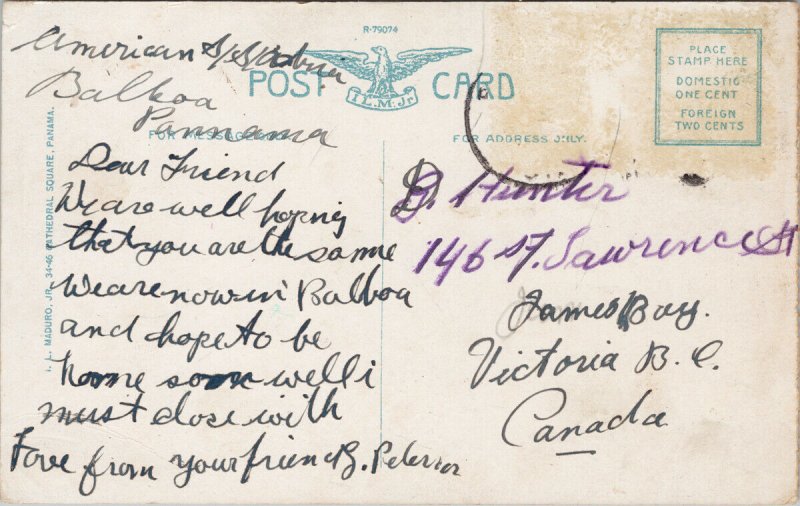 R-79074
American S/S
Balboa
Pannama
POST CARD
I.L.M.Jr.
PLACE
STAMP HERE
DOMESTIC
ONE CENT
FOREIGN
TWO CENTS
FOR ADDRESS ONLY.
Dear Friend
We are well hoping
that you are the same
we are now in Balboa
and hope to be
home soon well i
must close with
Love from your friend B.
B. Hunter
146 St. Lawrence St
James Bay.
Victoria B.C.
Canada
I. L. MADURO, JR. 34-46 CATHEDRAL SQUARE, PANAMA.